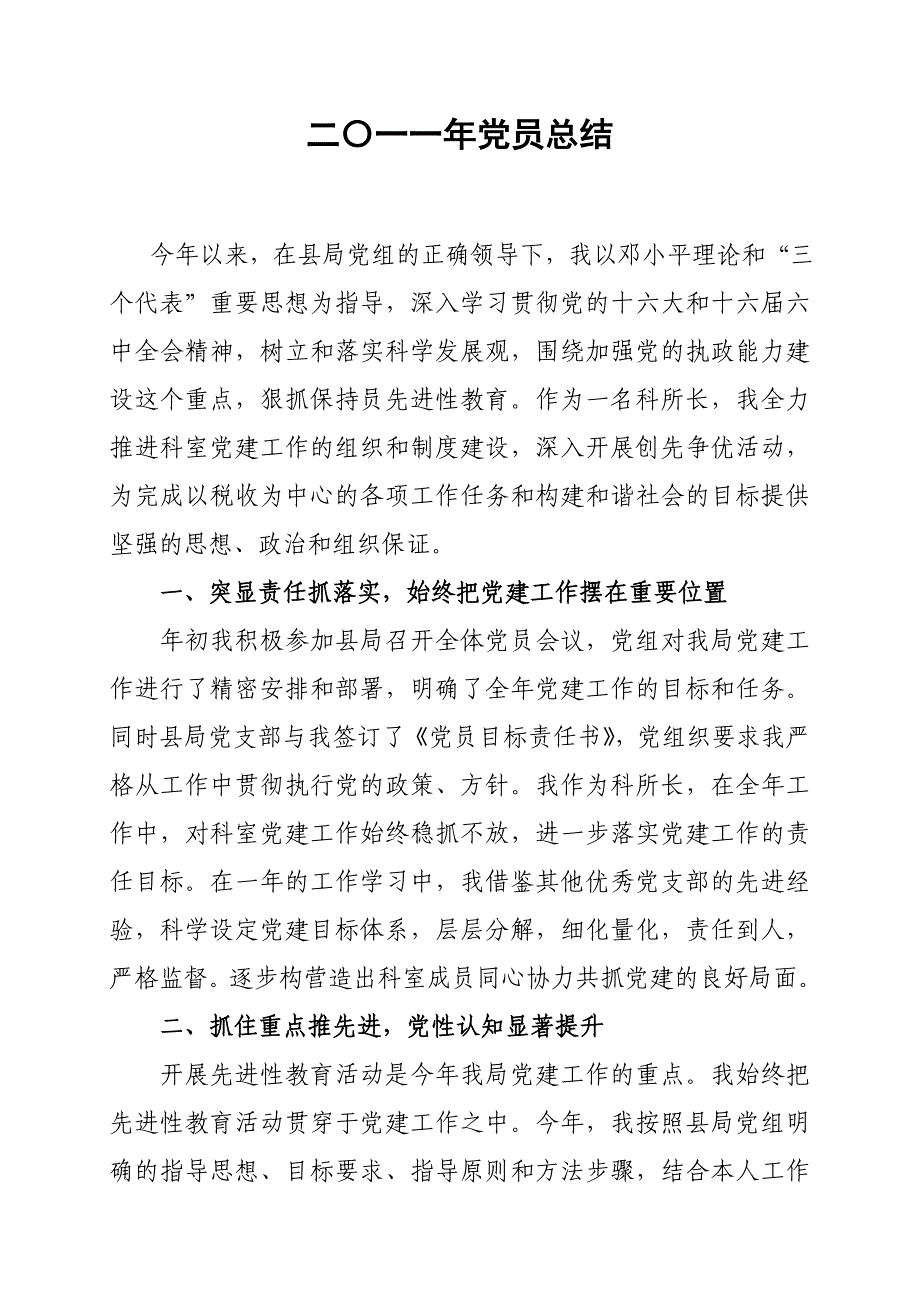 二〇一一年党员总结
今年以来，在县局党组的正确领导下，我以邓小平理论和“三
个代表”重要思想为指导，深入学习贯彻党的十六大和十六届六
中全会精神，树立和落实科学发展观，围绕加强党的执政能力建
设这个重点，狠抓保持员先进性教育。作为一名科所长，我全力
推进科室党建工作的组织和制度建设，深入开展创先争优活动，
为完成以税收为中心的各项工作任务和构建和谐社会的目标提供
坚强的思想、政治和组织保证。
一、突显责任抓落实，始终把党建工作摆在重要位置
年初我积极参加县局召开全体党员会议，党组对我局党建工
作进行了精密安排和部署，明确了全年党建工作的目标和任务。
同时县局党支部与我签订了《党员目标责任书》，党组织要求我严
格从工作中贯彻执行党的政策、方针。我作为科所长，在全年工
作中，对科室党建工作始终稳抓不放，进一步落实党建工作的责
任目标。在一年的工作学习中，我借鉴其他优秀党支部的先进经
验，科学设定党建目标体系，层层分解，细化量化，责任到人，
严格监督。逐步构营造出科室成员同心协力共抓党建的良好局面。
二、抓住重点推先进，党性认知显著提升
开展先进性教育活动是今年我局党建工作的重点。我始终把
先进性教育活动贯穿于党建工作之中。今年，我按照县局党组明
确的指导思想、目标要求、指导原则和方法步骤，结合本人工作